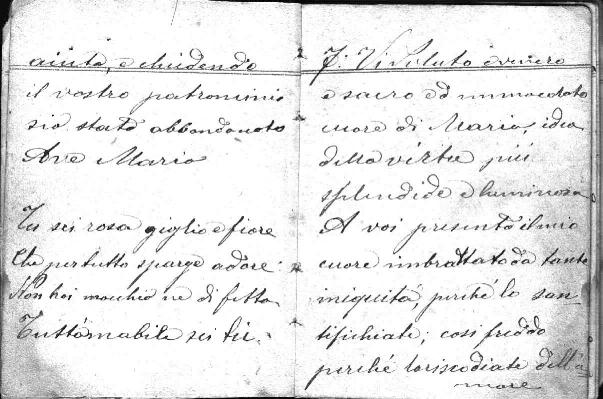 aiuta, e chiedendo
il vostro patrominio
sia stato abbandonato
Ave Maria
Tu sei rosa giglio e fiore
Che per tutto sparge adore
Non hai macchia ne di fetta
Tutt'amabile sei tu.
7. Vi Saluto o vivero
e sacro ed immacolato
cuore di Maria, idea
della virtu più
splendide e luminosa
A voi presento il mio
cuore imbrattato da tante
iniquità, perché lo san
tifichiate; cosi freddo
perché lo riscodiate dell'a
more